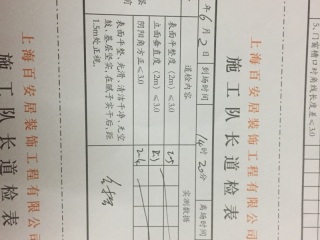 5、门窗槽口对角线长度差≤3.0
上海百安居装饰工程有限公司
施工队长巡检表
6月2日 到场时间 14时20分 离场时间
巡检内容 实测数据
表面平整度(2m)≤3.0 2.5
立面垂直度(2m)≤3.0
阴阳角方正≤3.0 2.4
表面平整、光滑，清洁干净，无空
鼓、基层坚实，在腻子实干后，距
1.5m处正视。
上海百安居装饰工程有限公司
施工队长巡检表